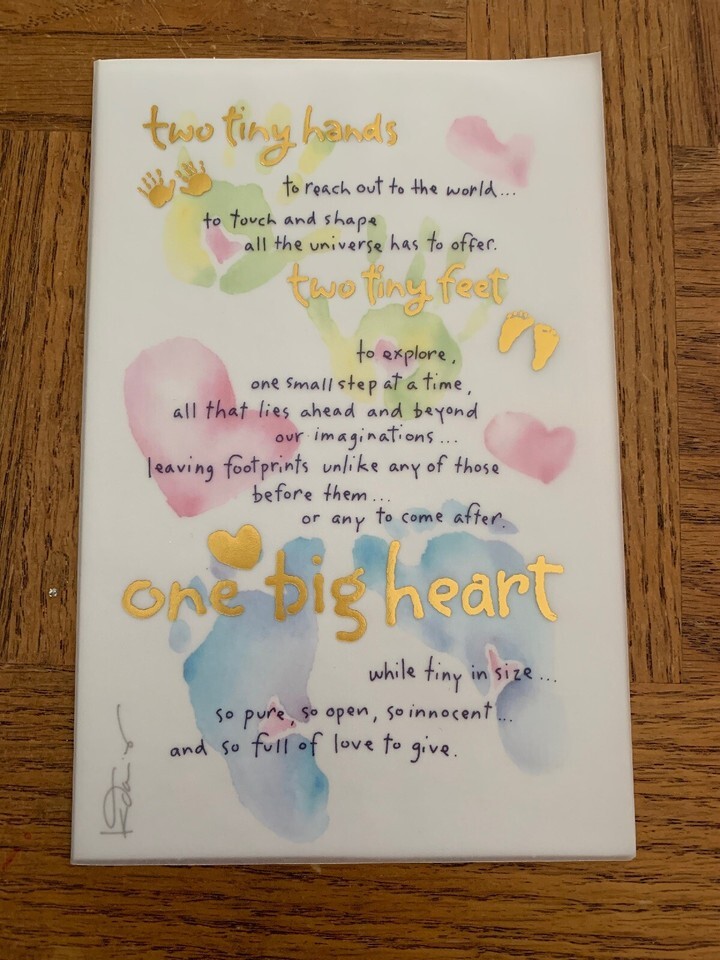 two tiny hands
to reach out to the world...
to touch and shape
all the universe has to offer.
two tiny feet
to explore,
one small step at a time,
all that lies ahead and beyond
our imaginations...
leaving footprints unlike any of those
before them...
or any to come after.
one big heart
while tiny in size...
so pure, so open, so innocent...
and so full of love to give.